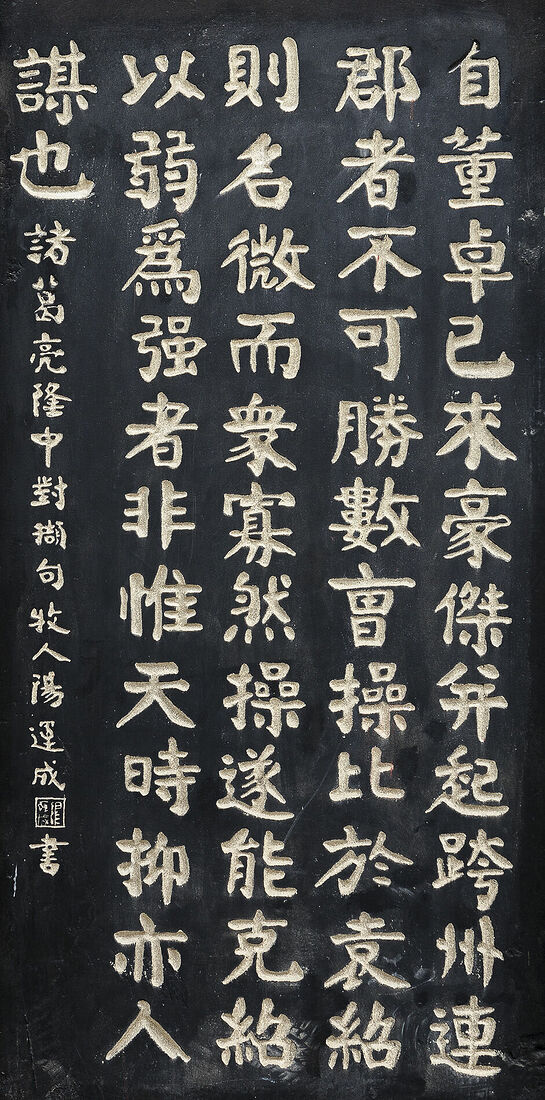 自董卓已來豪傑并起跨州連
郡者不可勝數曹操比於袁紹
則名微而衆寡然操遂能克紹
以弱爲强者非惟天時抑亦人
謀也
諸葛亮隆中對擷句牧人陽運成書